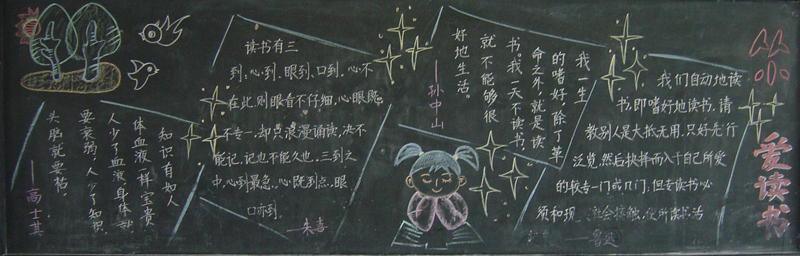 知识有如人
体血液一样宝贵
人少了血液,身体就
要衰弱,人少了知识
头脑就要枯。
——高士其
读书有三
到:心到、眼到、口到。心不
在此,则眼看不仔细,心眼既
不专一,却只浪漫诵读,决不
能记,记也不能久也。三到之
中,心到最急。心既到点,眼
口亦到。
——朱熹
我一生
的嗜好,除了革
命之外,就是读
书。我一天不读书,
就不能够很
好地生活。
——孙中山
我们自动地读
书,即嗜好地读书,请
教别人是大抵无用,只好先行
泛览,然后抉择而入于自己所爱
的较专一门或几门,但专读书必
须和现社会接触,使所读书活
——鲁迅
爱读书